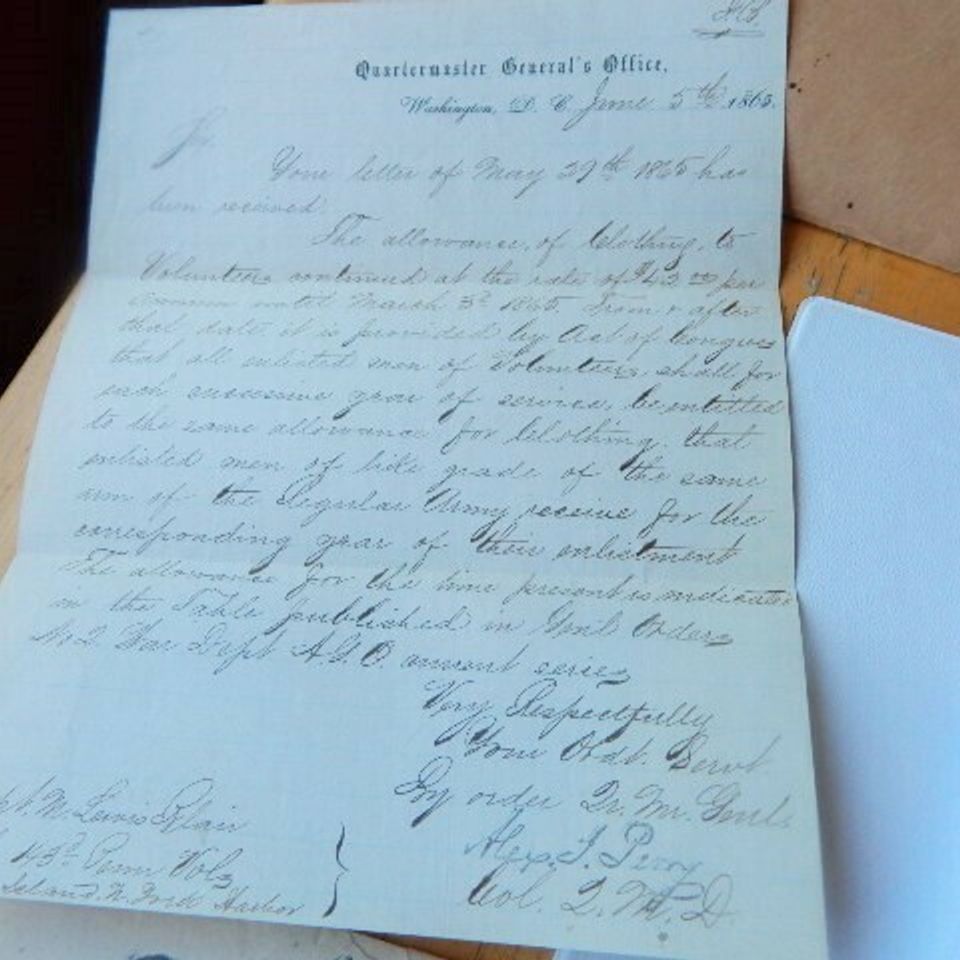 Quartermaster General's Office,
Washington, D. C. June 5th 1865.
Sir.
Your letter of May 29th 1865 has
been received.
The allowance, of Clothing, to
Volunteers continued at the rate of $42 00 per
annum until March 3d 1865. From & after
that date it is provided by Act of Congress
that all enlisted men of Volunteers, shall for
each successive year of service, be entitled
to the same allowance for Clothing. that
enlisted men of like grade of the same
arm of the Regular Army receive for the
corresponding year of their enlistment
The allowance for the time present is indicated
in the Table published in Genl Orders
No 2. War Dept A.G.O current series
Very Respectfully
Your Obdt. Servt
By order Qr. Mr. Genl
Alex. J. Perry
Col. Q. M. D.
Lewis Blair
43d Penn Vols
Island N. York Harbor